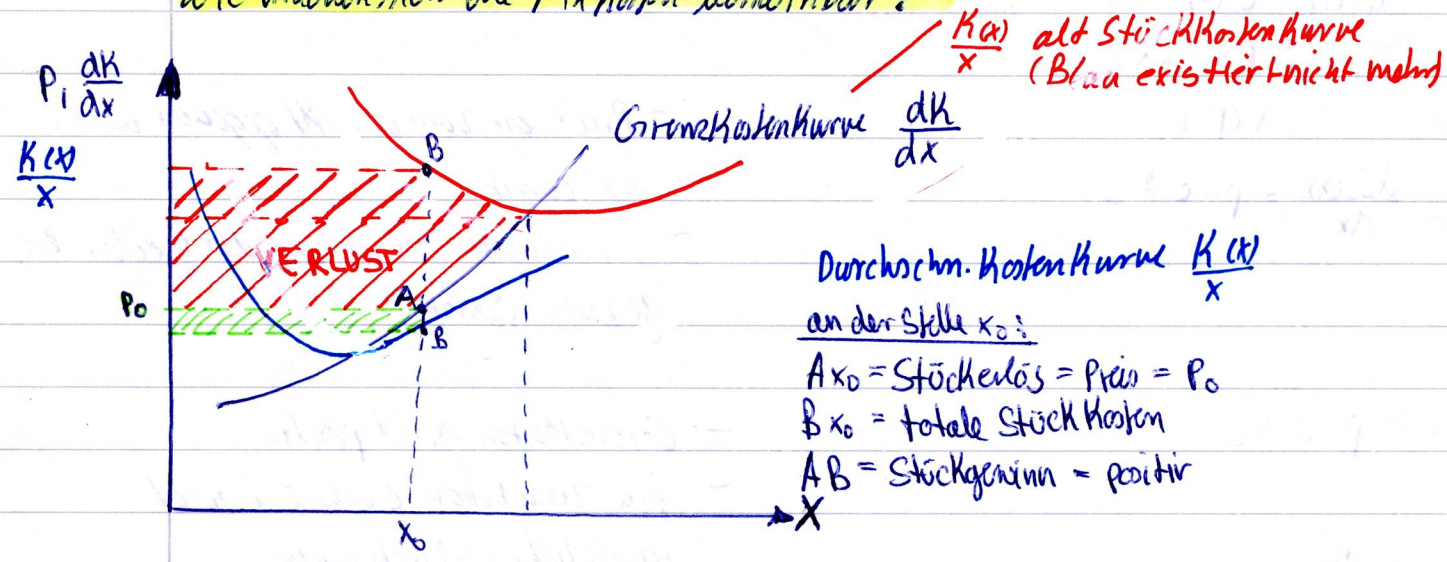 K(x)/x alt Stückkostenkurve
(Blau existiert nicht mehr)
P, dK/dx
K(x)/x
Grenzkostenkurve dK/dx
B
VERLUST
P₀
A
B
Durchschn. Kostenkurve K(x)/x
an der Stelle x₀:
Ax₀ = Stückerlös = Preis = P₀
Bx₀ = totale Stückkosten
AB = Stückgewinn = positiv
X
X₀